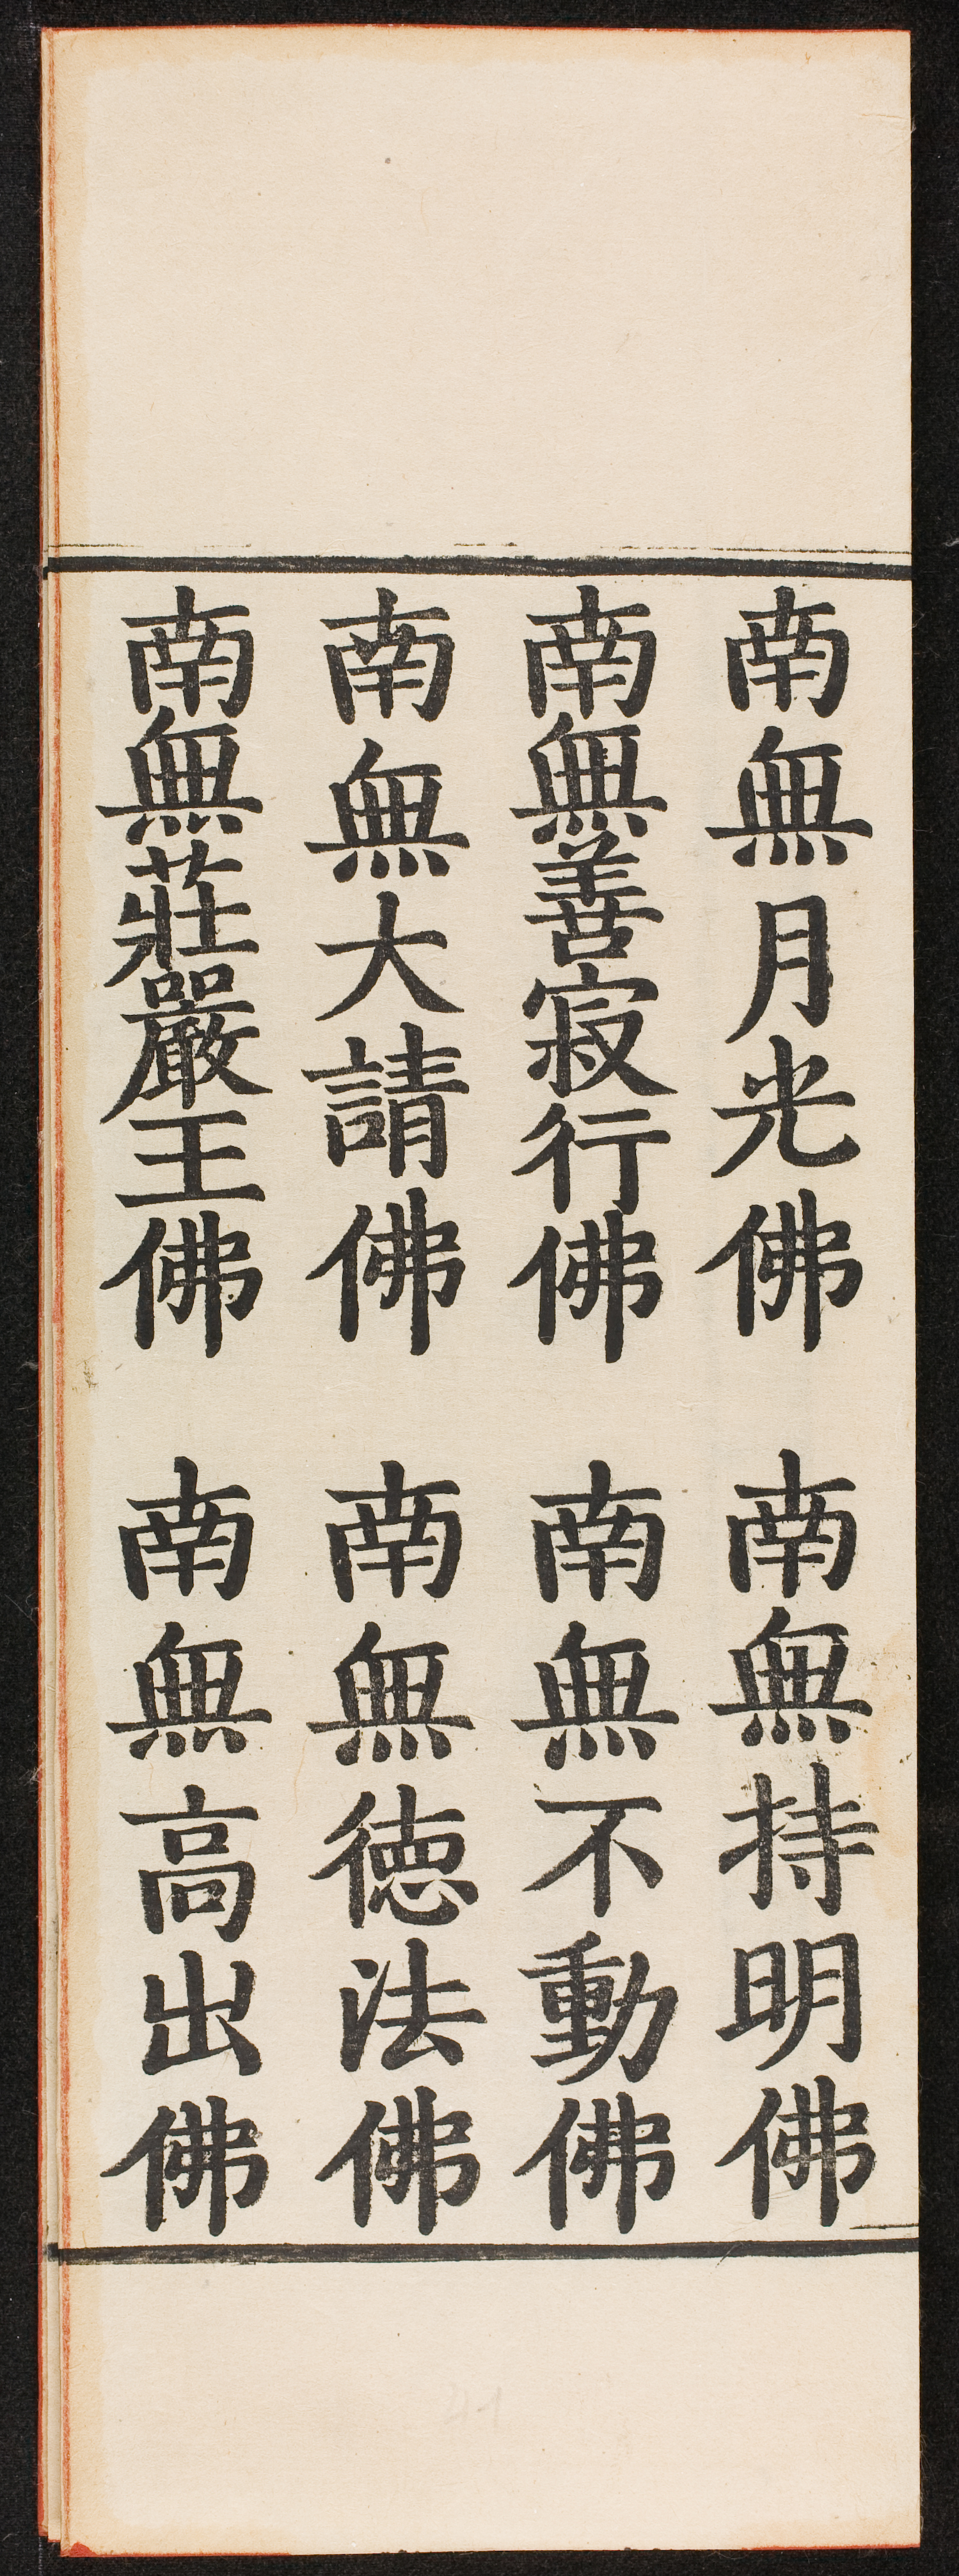 南無月光佛　南無持明佛
南無善寂行佛　南無不動佛
南無大請佛　南無德法佛
南無莊嚴王佛　南無高出佛